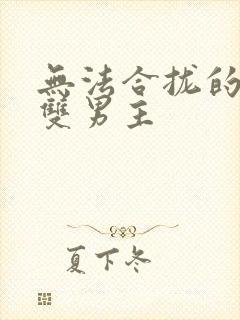 無法合拢的
雙男主
夏下冬